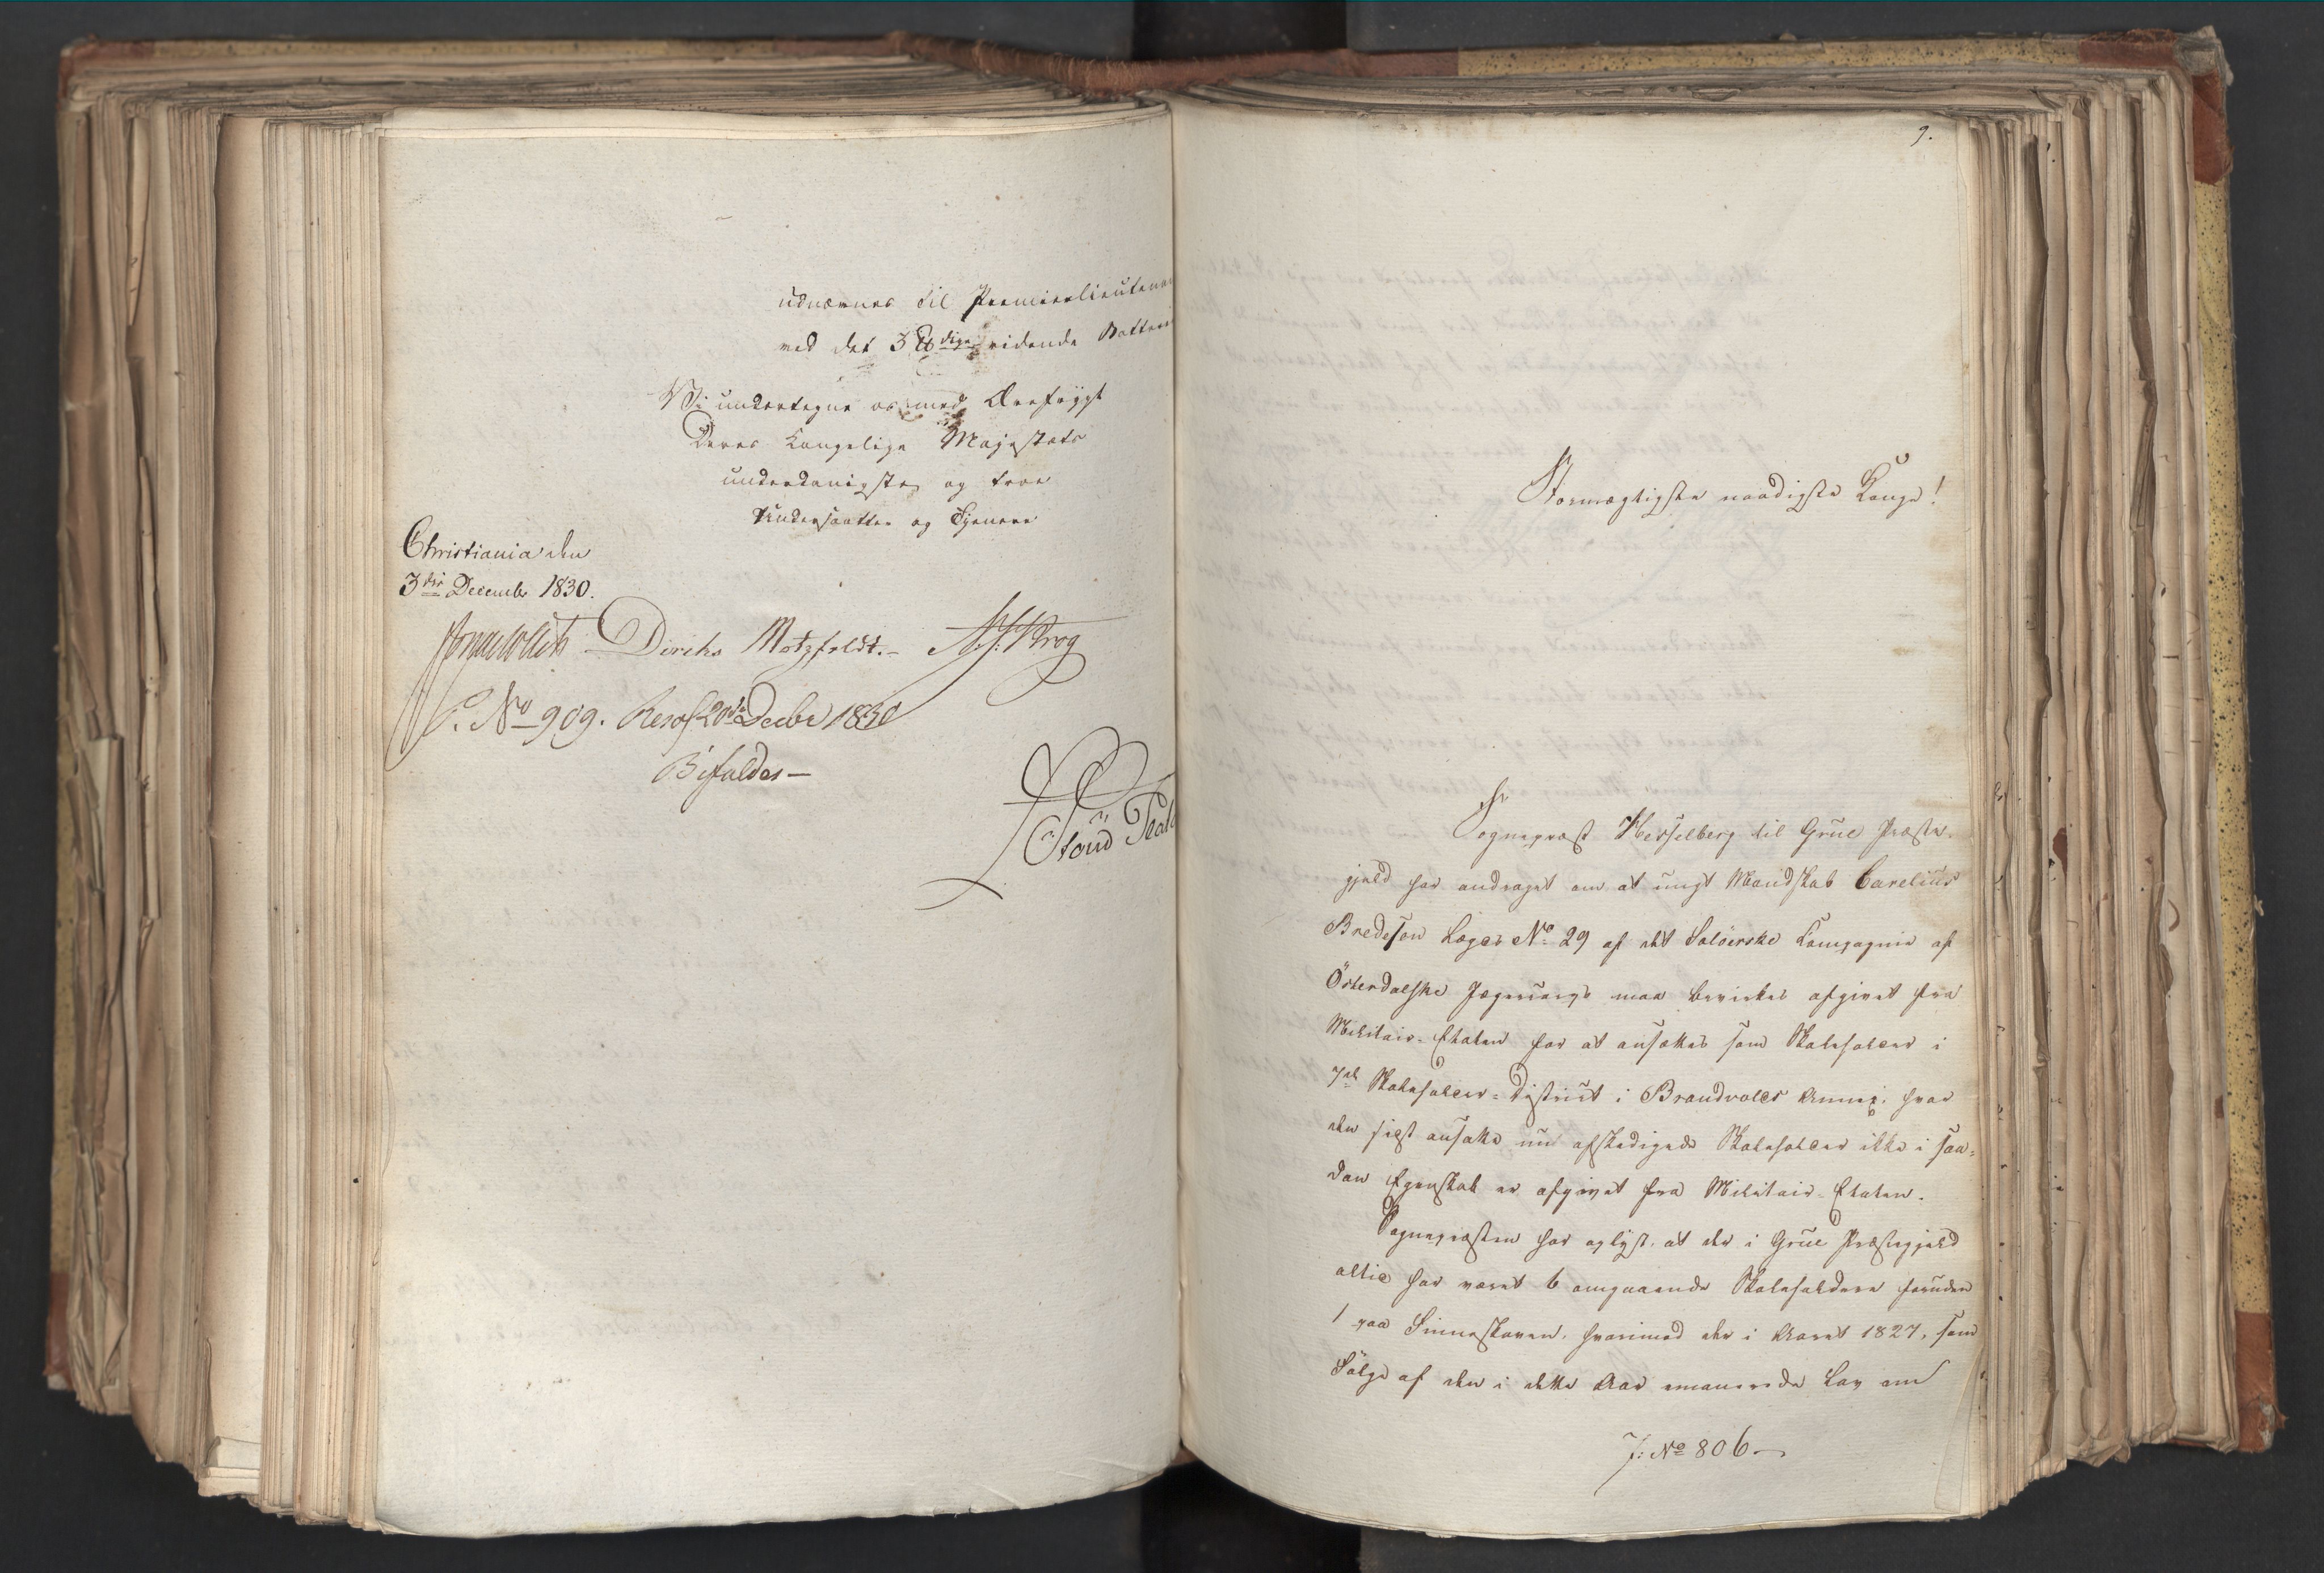 udnævnes til Premierlieutenan
ved det 3 ℔dige ridende Batteri
Vi undertegne os med Ærefrygt
Deres Kongelige Majestæts
underdanigste og troe
Undersaatter og Tjenere
Christiania den
3die December 1830.
Jonas Collett Diriks Motzfeldt.- Krog
P. No 909. Resol. 20de Decbr 1830
Bifaldes-
9.
Stormægtigste naadigste Konge!
Sognepræst Hesselberg til Grue Præste-
gjeld har andraget om at ungt Mandskab Carelius
Bredesen Lægd No 29 af det Solöerske Compagnie af
Österdalske Jægercorps maa bevirkes afgivet fra
Militair-Etaten for at ansættes som Skoleholder i
7de Skoleholder-District i Brandvolds Annex, hvor
den sidst ansatte nu afskedigede Skoleholder ikke i saa-
dan Egenskab er afgivet fra Militair-Etaten.
Sognepræsten har oplyst, at der i Grue Præstegjeld
altid har været 6 omgaaende Skoleholdere foruden
1 paa Finneskoven, hvorimod der i Aaret 1827, som
Fölge af den i dette Aar emanerede Lov om
J: No 806-